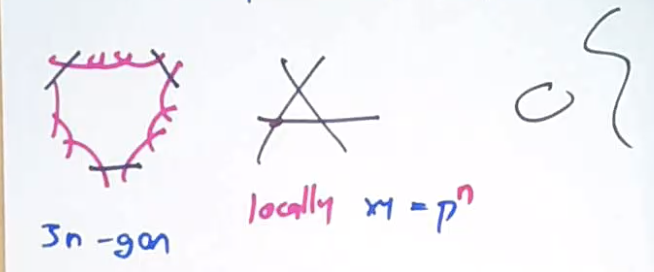 3n-gon
locally xy = p^n